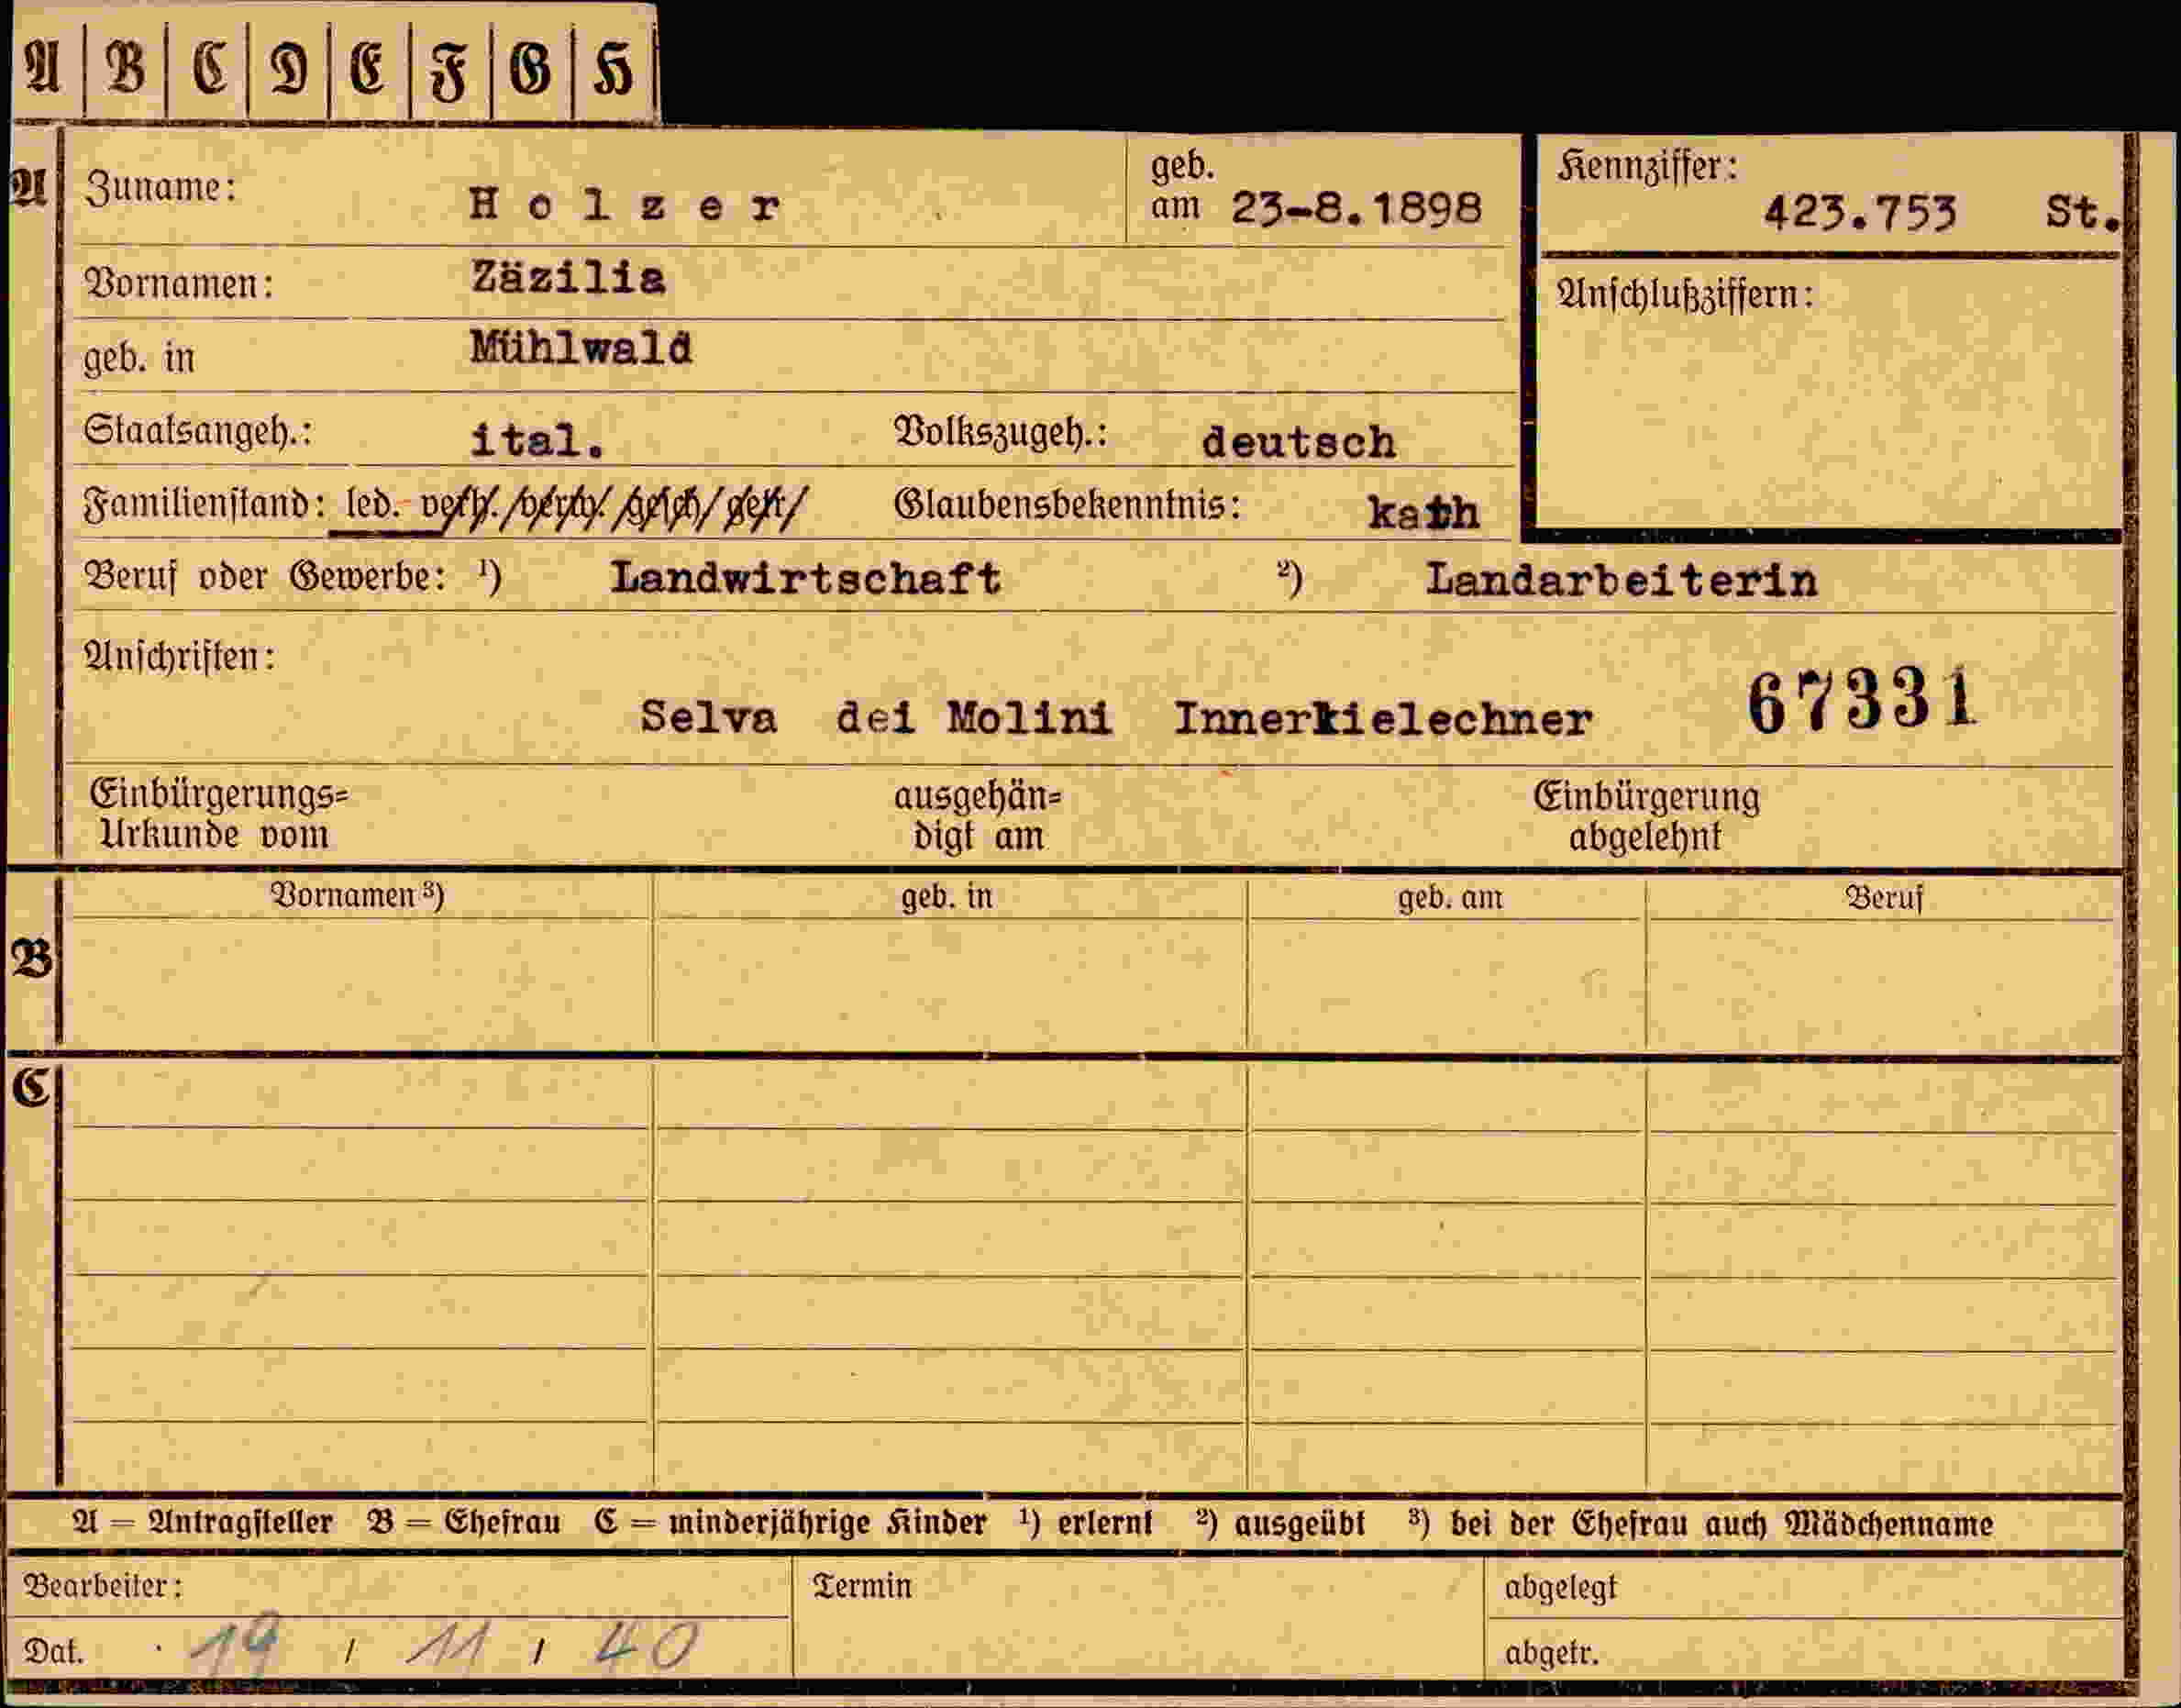 A | B | C | D | E | F | G | H
A Zuname: Holzer geb. am 23-8.1898 Kennziffer: 423.753 St.
Vornamen: Zäzilia Anschlußziffern:
geb. in Mühlwald
Staatsangeh.: ital. Volkszugeh.: deutsch
Familienstand: led. verh./verw./gesch/getr/ Glaubensbekenntnis: kath
Beruf oder Gewerbe: ¹) Landwirtschaft ²) Landarbeiterin
Anschriften:
Selva dei Molini Innerkielechner 67331
Einbürgerungs= ausgehän= Einbürgerung
Urkunde vom digt am abgelehnt
Vornamen ³) geb. in geb. am Beruf
B
C
A = Antragsteller B = Ehefrau C = minderjährige Kinder ¹) erlernt ²) ausgeübt ³) bei der Ehefrau auch Mädchenname
Bearbeiter: Termin abgelegt
Dat. 19 / 11 / 40 abgetr.